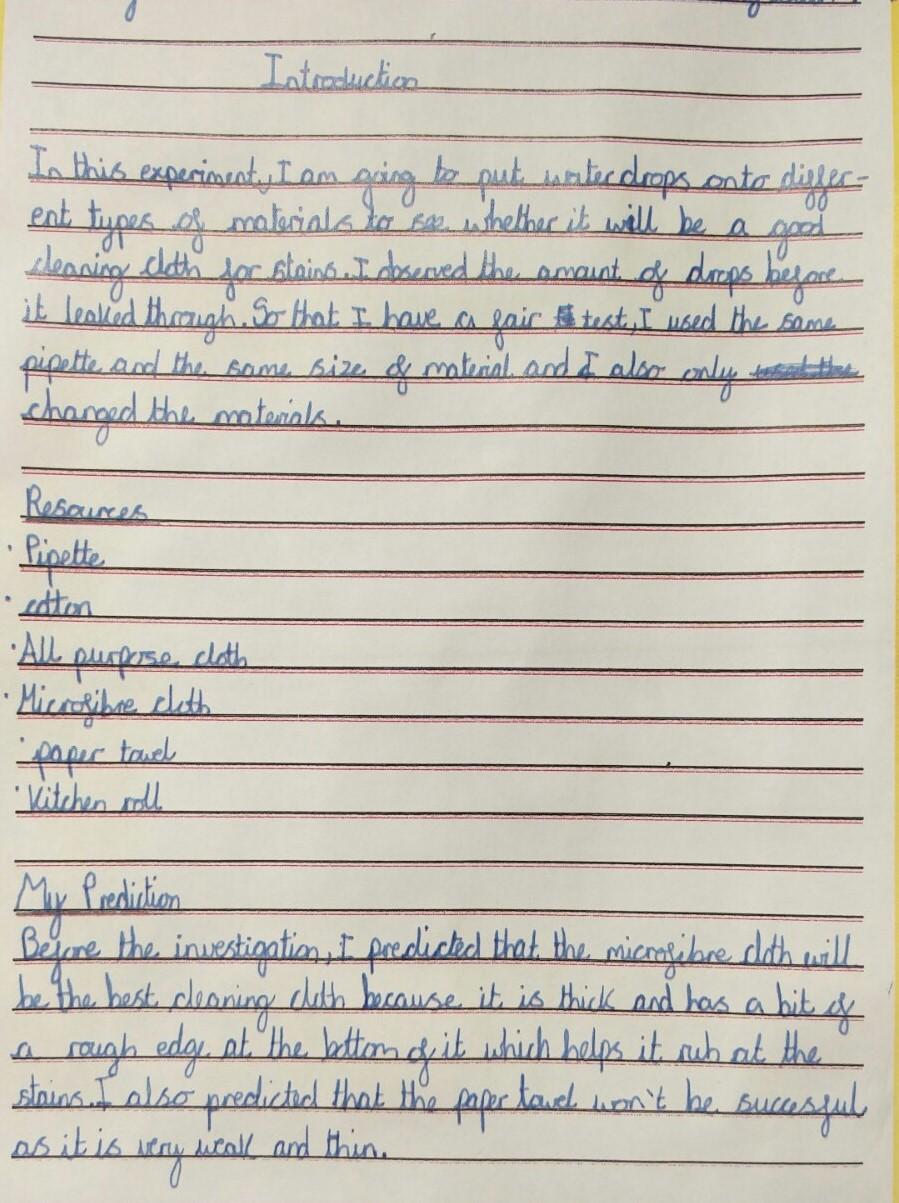 Introduction
In this experiment, I am going to put water drops onto differ-
ent types of materials to see whether it will be a good
cleaning cloth for stains. I observed the amount of drops before
it leaked through. So that I have a fair test, I used the same
pipette and the same size of material and I also only
changed the materials.
Resources
· Pipette
· cotton
· All purpose cloth
· Microfibre cloth
· paper towel
· Kitchen roll
My Prediction
Before the investigation, I predicted that the microfibre cloth will
be the best cleaning cloth because it is thick and has a bit of
a rough edge at the bottom of it which helps it rub at the
stains. I also predicted that the paper towel won't be succesful
as it is very weak and thin.